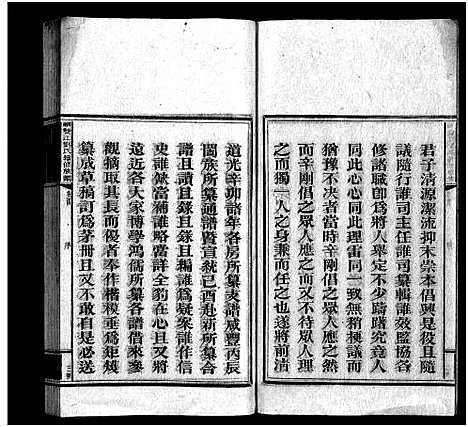 君子清源潔流抑末崇本倡興是役且隨
議隨行誰司主任誰司纂輯誰效監協各
修諸職卽爲將人舉定不少躊躇究竟人
同此心心同此理雷同一致無稍擬議而
猶豫不决者當時辛剛倡之眾人應之然
而辛剛倡之眾人應之而又不待眾人理
之而獨以一人之身兼而任之也遂將前清
道光辛卯譜年各房所纂支譜咸豐丙辰
閤族所纂通譜暨宣統己酉赴新所纂合
譜且讀且錄且編誰爲疑衆誰作信
史誰獻誰略當詳全豹在心且又將
遠近各大家博學鴻儒所纂譜借來參
觀摘取其長而優者奉作楷模垂爲矩矱
纂成草稿訂爲茅冊且又不敢自是必送